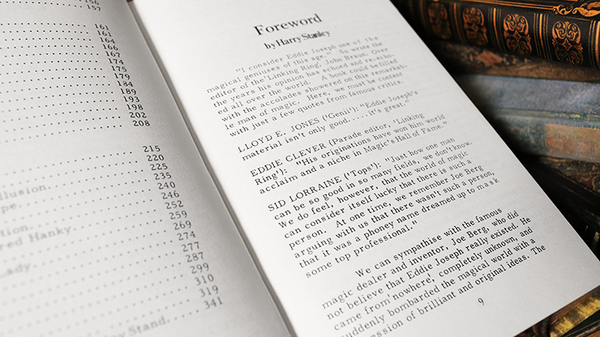 161
164
166
167
175
179
184
189
193
198
202
208
215
220
225
235
240
246
252
259
269
274
277
287
299
310
319
341
llusion.
pe
ion
red Hanky
Lady.
ry Stand.
Foreword
by Harry Stanley
"I consider Eddie Joseph one of the
magical geniuses of this age." So wrote the
editor of the Linking Ring, John Braun. Over
the years his opinion has echoed and resound-
ed all over the world. A book could be filled
with the accolades showered on this remarkab-
le man of magic. Here, we must be content
with just a few quotes from famous critics.
LLOYD E. JONES ('Genii': "Eddie Joseph's
material isn't only good.....it's great."
EDDIE CLEVER (Parade editor, 'Linking
Ring'): "His originations have won him world
acclaim and a niche in Magic's Hall of Fame.
SID LORRAINE ('Tops'): "Just how one man
can be so good in so many fields, we don't know.
We do feel, however, that the world of magic
can consider itself lucky that there is such a
person. At one time, we remember Joe Berg
arguing with us that there wasn't such a person,
that it was a phoney name dreamed up to mask
some top professional."
We can sympathise with the famous
magic dealer and inventor, Joe Berg, who did
not believe that Eddie Joseph really existed. He
came from nowhere, completely unknown, and
suddenly bombarded the magical world with a
ession of brilliant and original ideas. The
9